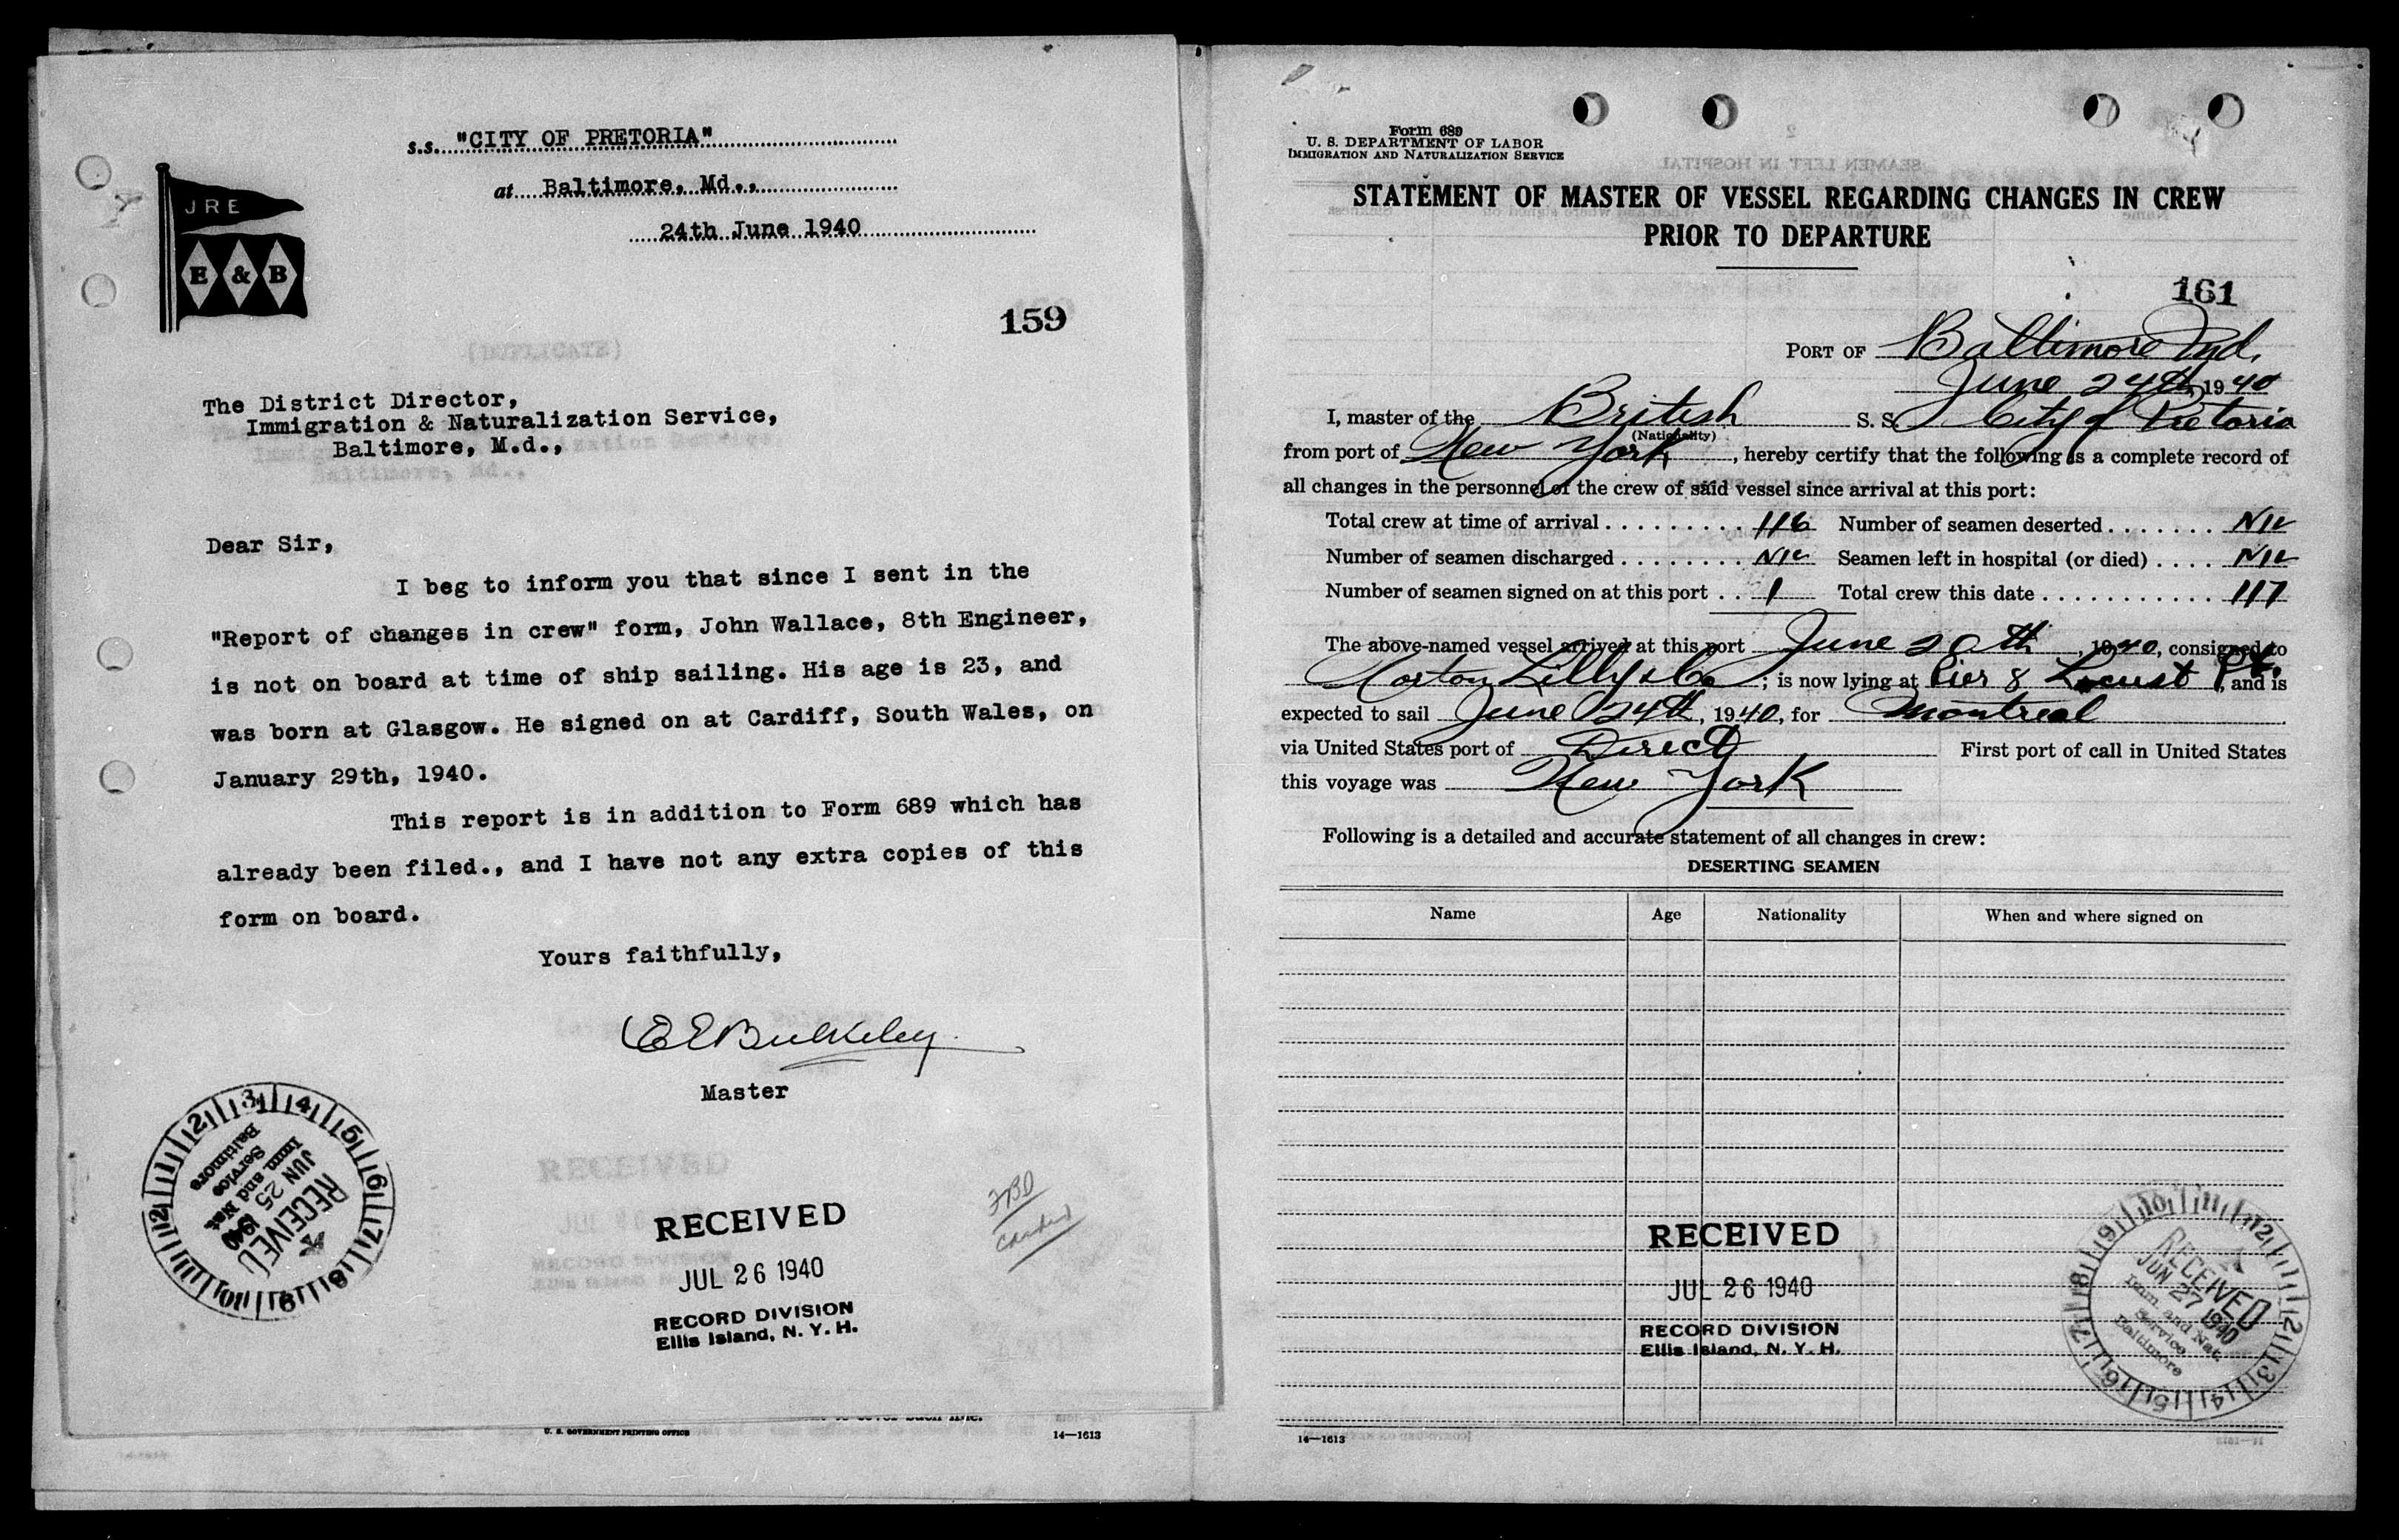 s.s. "CITY OF PRETORIA"
at Baltimore, Md.,
24th June 1940
JRE
E & B
159
The District Director,
Immigration & Naturalization Service,
Baltimore, M.d.,
Dear Sir,
I beg to inform you that since I sent in the
"Report of changes in crew" form, John Wallace, 8th Engineer,
is not on board at time of ship sailing. His age is 23, and
was born at Glasgow. He signed on at Cardiff, South Wales, on
January 29th, 1940.
This report is in addition to Form 689 which has
already been filed., and I have not any extra copies of this
form on board.
Yours faithfully,
E E Bulkeley
Master
RECEIVED
JUN 25 1940
Imm. and Nat.
Service
Baltimore
RECEIVED
JUL 26 1940
RECORD DIVISION
Ellis Island, N. Y. H.
carded
U. S. GOVERNMENT PRINTING OFFICE
14—1613
Form 689
U. S. DEPARTMENT OF LABOR
IMMIGRATION AND NATURALIZATION SERVICE
STATEMENT OF MASTER OF VESSEL REGARDING CHANGES IN CREW
PRIOR TO DEPARTURE
161
PORT OF Baltimore Md.
June 24th, 1940
I, master of the British S. S. City of Pretoria
(Nationality)
from port of New York, hereby certify that the following is a complete record of
all changes in the personnel of the crew of said vessel since arrival at this port:
Total crew at time of arrival . . . . . . . . . 116 Number of seamen deserted . . . . . . . NIL
Number of seamen discharged . . . . . . . . NIL Seamen left in hospital (or died) . . . . NIL
Number of seamen signed on at this port . . 1 Total crew this date . . . . . . . . . . . . 117
The above-named vessel arrived at this port June 20th, 1940, consigned to
Norton Lilly & Co; is now lying at Pier 8 Locust Pt., and is
expected to sail June 24th, 1940, for Montreal
via United States port of Direct First port of call in United States
this voyage was New York
Following is a detailed and accurate statement of all changes in crew:
DESERTING SEAMEN
Name Age Nationality When and where signed on
RECEIVED
JUL 26 1940
RECORD DIVISION
Ellis Island, N. Y. H.
RECEIVED
JUN 27 1940
Imm. and Nat.
Service
Baltimore
14—1613